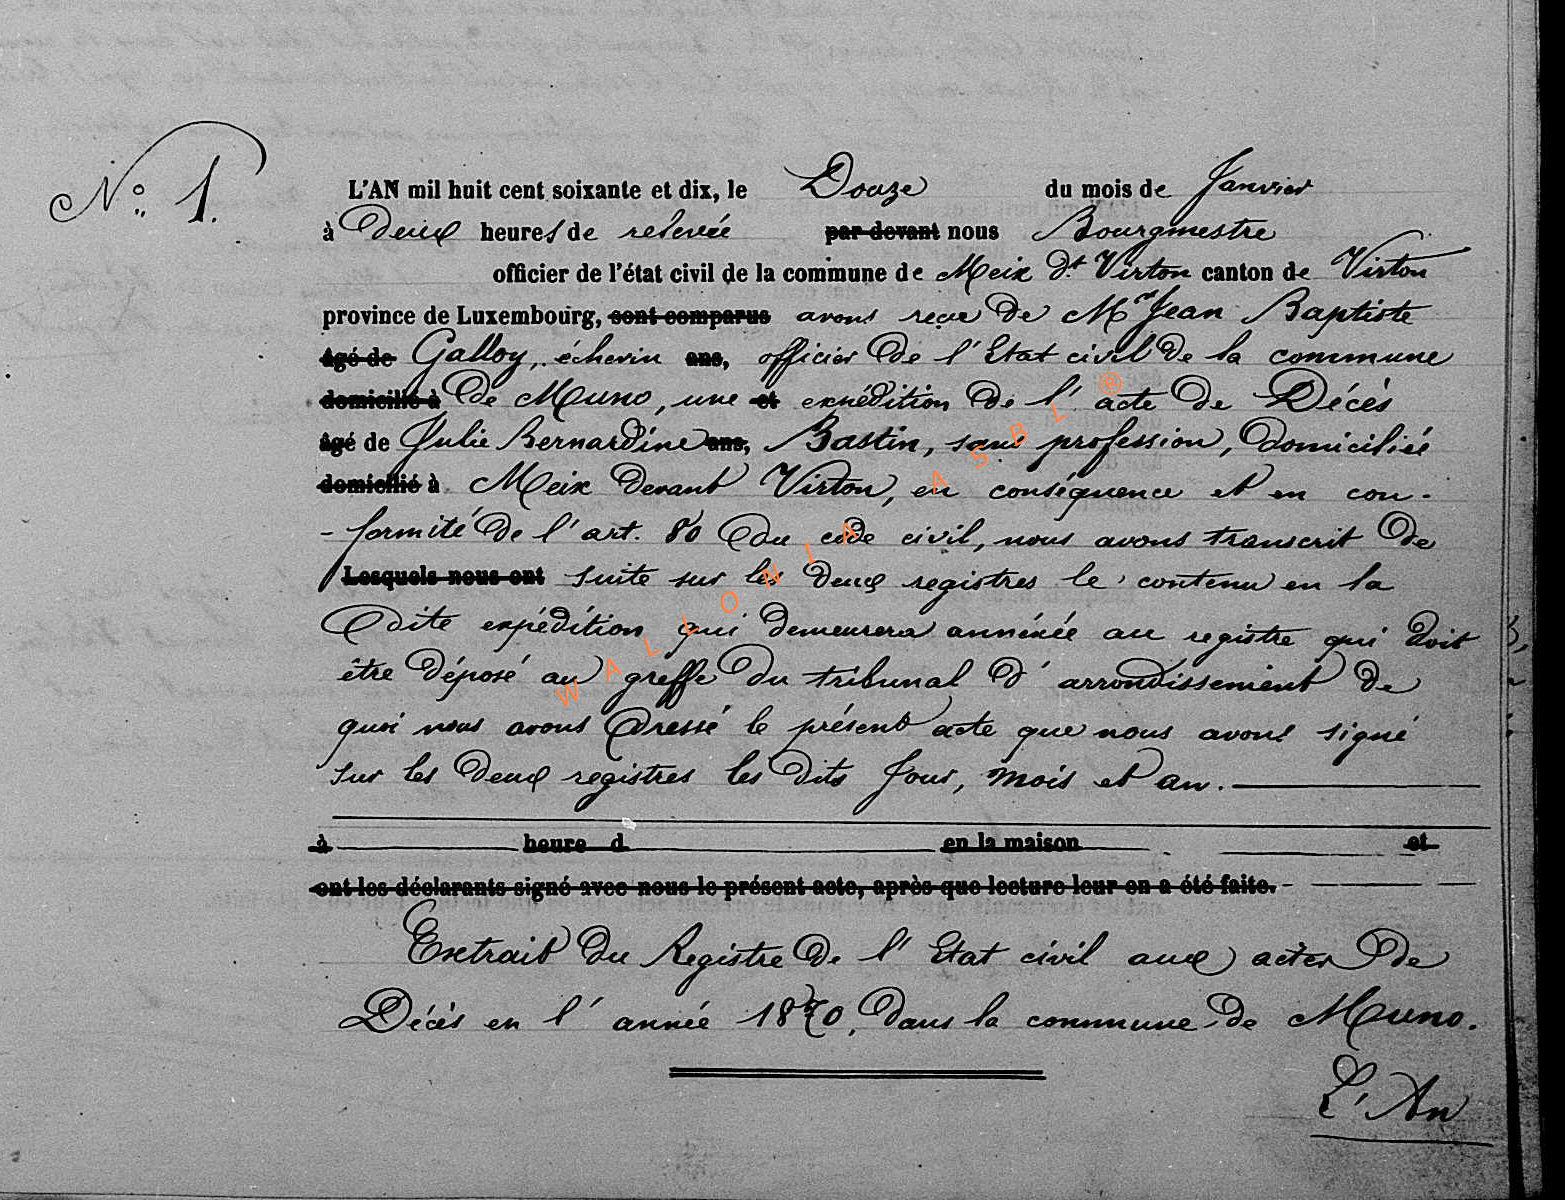 N° 1.
L'AN mil huit cent soixante et dix, le Douze du mois de Janvier
à Deux heures de relevée par devant nous Bourgmestre
officier de l'état civil de la commune de Meix dt Virton canton de Virton
province de Luxembourg, sont comparus avons reçu de Mr Jean Baptiste
âgé de Galloy, échevin ans, officier de l'Etat civil de la commune
domicilié à de Muno, une et expédition de l'acte de Décès
âgé de Julie Bernardine ans, Bastin, sans profession, domiciliée
domicilié à Meix devant Virton, en conséquence et en con-
-formité de l'art. 80 du code civil, nous avons transcrit de
Lesquels nous ont suite sur les deux registres le contenu en la
dite expédition qui demeurera annéxée au registre qui doit
être déposé au greffe du tribunal d'arrondissement de
quoi nous avons dressé le présent acte que nous avons signé
sur les deux registres les dits jour, mois et an.
à heure d en la maison et
ont les déclarants signé avec nous le présent acte, après que lecture leur en a été faite.
Extrait du Registre de l'Etat civil aux actes de
Décès en l'année 1870, dans la commune de Muno.
L'An
WALLONIA ASBL ®